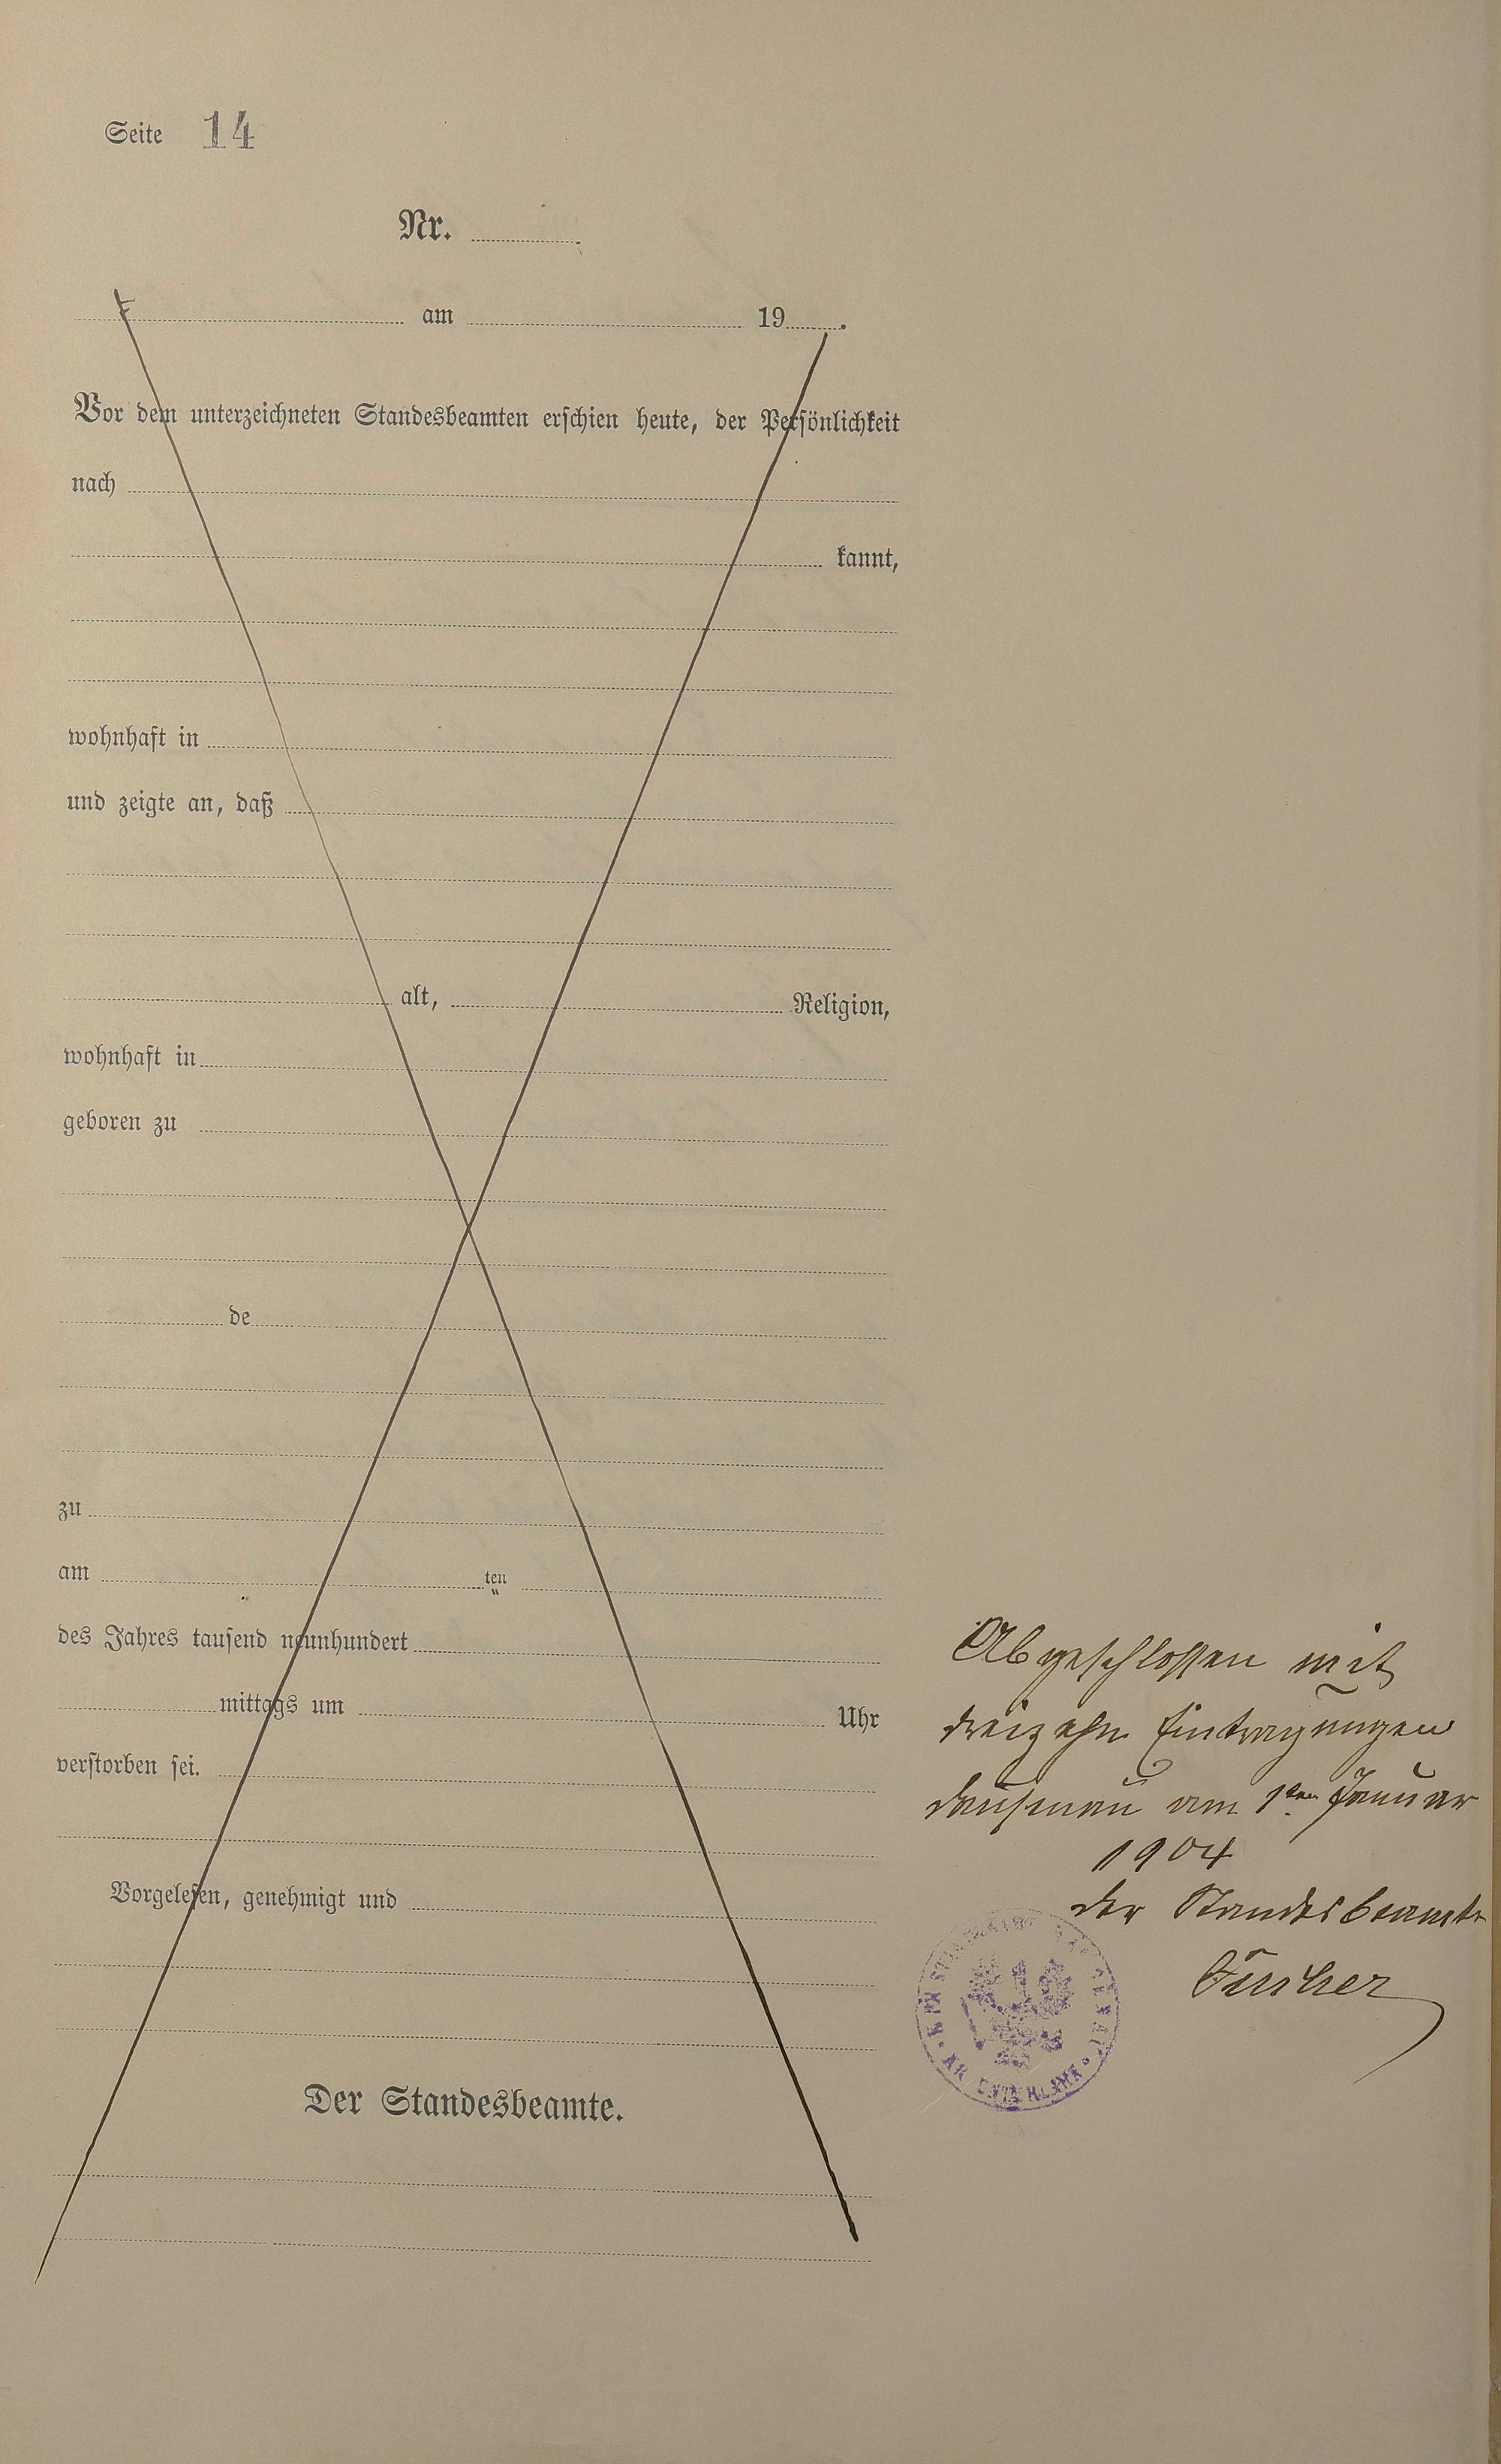 Seite 14
Nr.
am 19 .
Vor dem unterzeichneten Standesbeamten erschien heute, der Persönlichkeit
nach
kannt,
wohnhaft in
und zeigte an, daß
alt, Religion,
wohnhaft in
geboren zu
de
zu
am ten
des Jahres tausend neunhundert
mittags um Uhr
verstorben sei.
Vorgelesen, genehmigt und
Der Standesbeamte.
Abgeschlossen mit
dreizehn Eintragungen
Dausenau am 1ten Januar
1904
der Standesbeamte